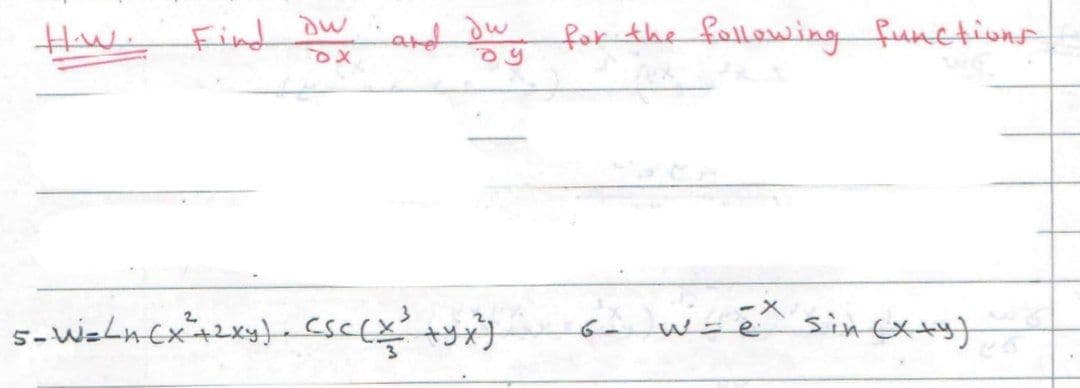 H.W. Find ∂w/∂x and ∂w/∂y for the following functions
5- w=Ln(x²+2xy). csc(x³/3 +yx²) 6- w = e⁻ˣ sin(x+y)